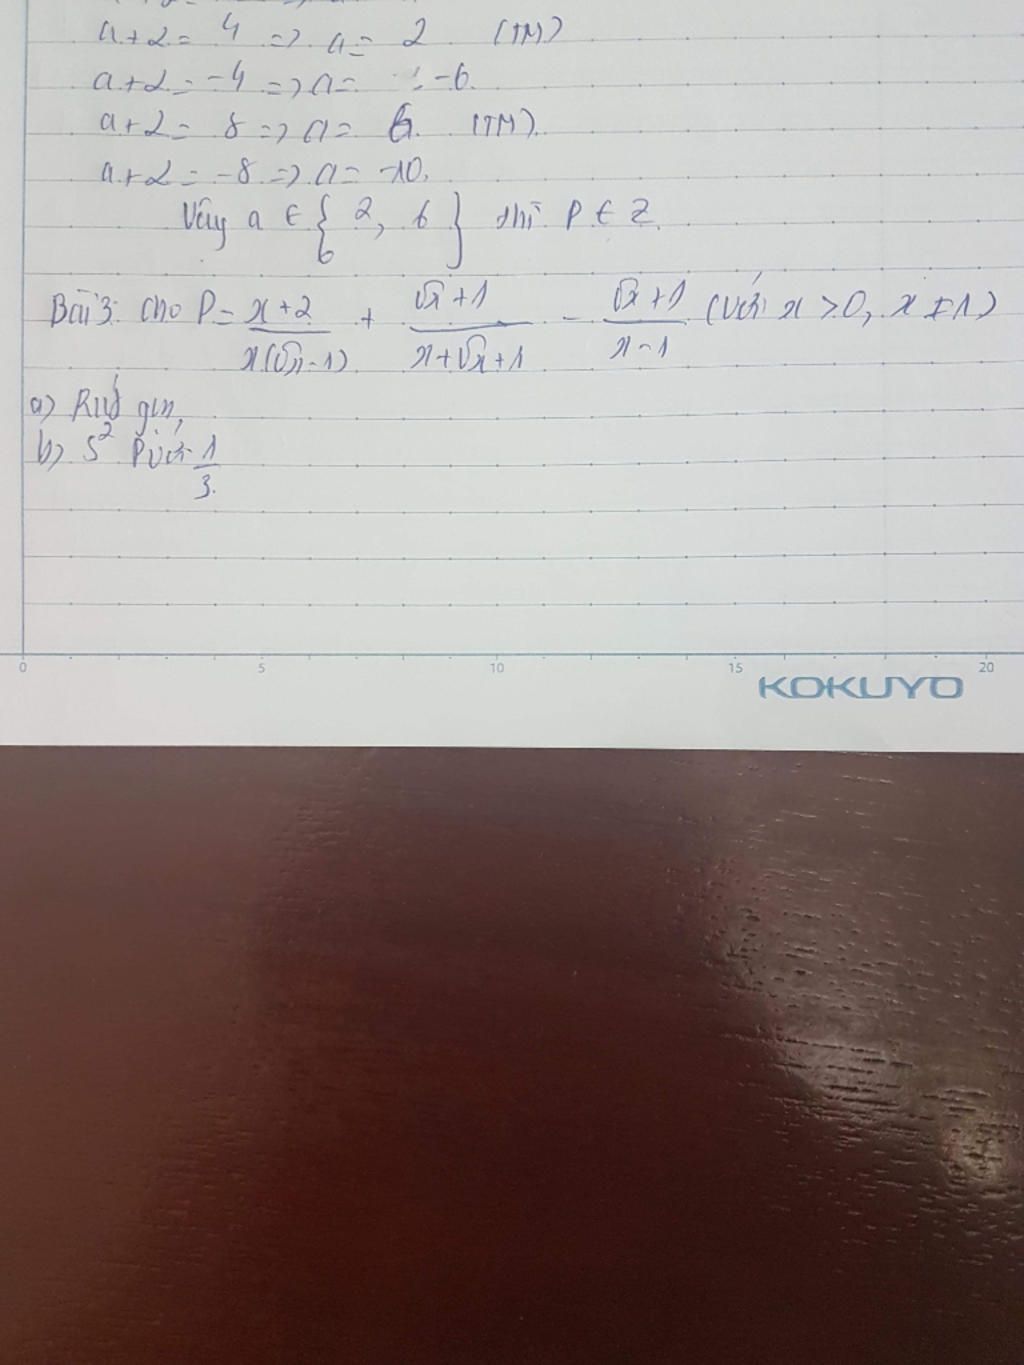 a+2 = 4 => a = 2 (TM)
a+2 = -4 => a = -6
a+2 = 8 => a = 6 (TM).
a+2 = -8 => a = -10.
Vậy a ∈ { 2, 6 } thì P ∈ Z.
Bài 3: Cho P = (x+2)/(x(√x-1)) + (√x+1)/(x+√x+1) - (√x+1)/(x-1) (với x > 0, x ≠ 1)
a) Rút gọn,
b) S² P với 1/3.
0 5 10 15 20
KOKUYO